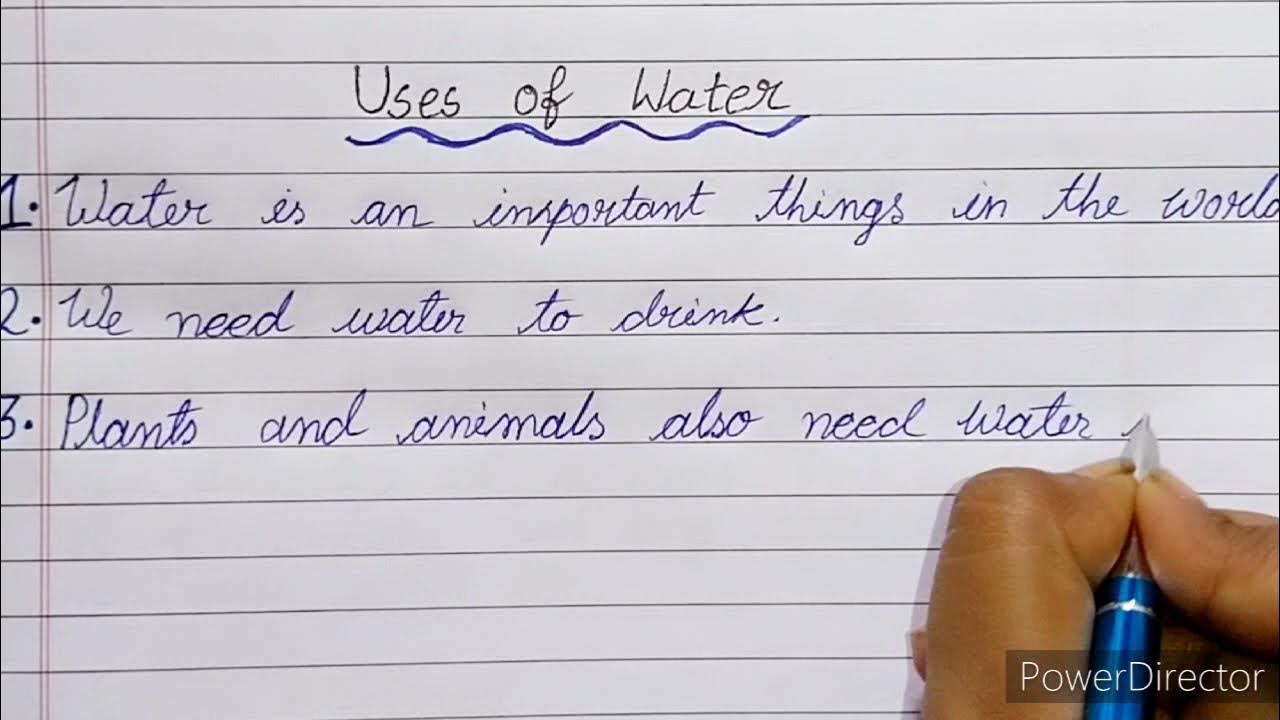 Uses of Water
1. Water is an important things in the world
2. We need water to drink.
3. Plants and animals also need water
PowerDirector